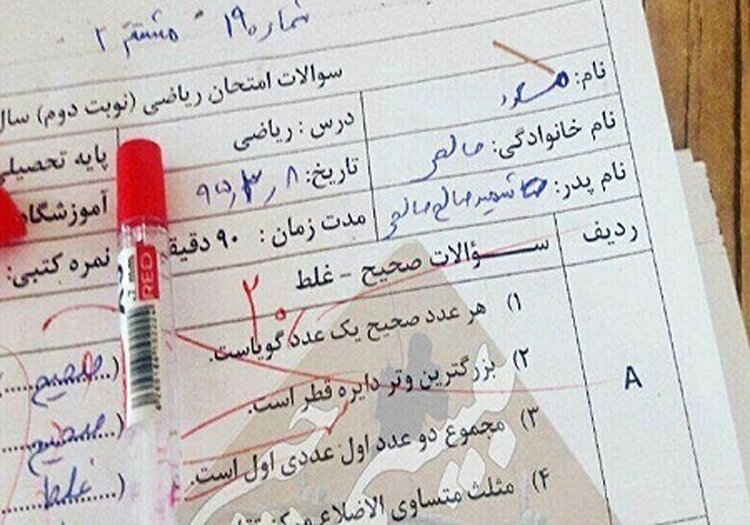 شماره ۱۹۰ مشتق ۲
سوالات امتحان ریاضی (نوبت دوم) سال
نام: مسعود
درس: ریاضی
پایه تحصیلی
نام خانوادگی: صالحی
تاریخ: ۹۵,۳,۸
آموزشگاه
نام پدر: شهید صالح صالحی
مدت زمان: ۹۰ دقیقه
نمره کتبی:
ردیف
سؤالات صحیح - غلط
۲۰
A
۱) هر عدد صحیح یک عدد گویاست.
(......صحیح
۲) بزرگترین وتر دایره قطر است.
(......صحیح
۳) مجموع دو عدد اول عددی اول است.
(......غلط
۴) مثلث متساوی الاضلاع مرکز
RED